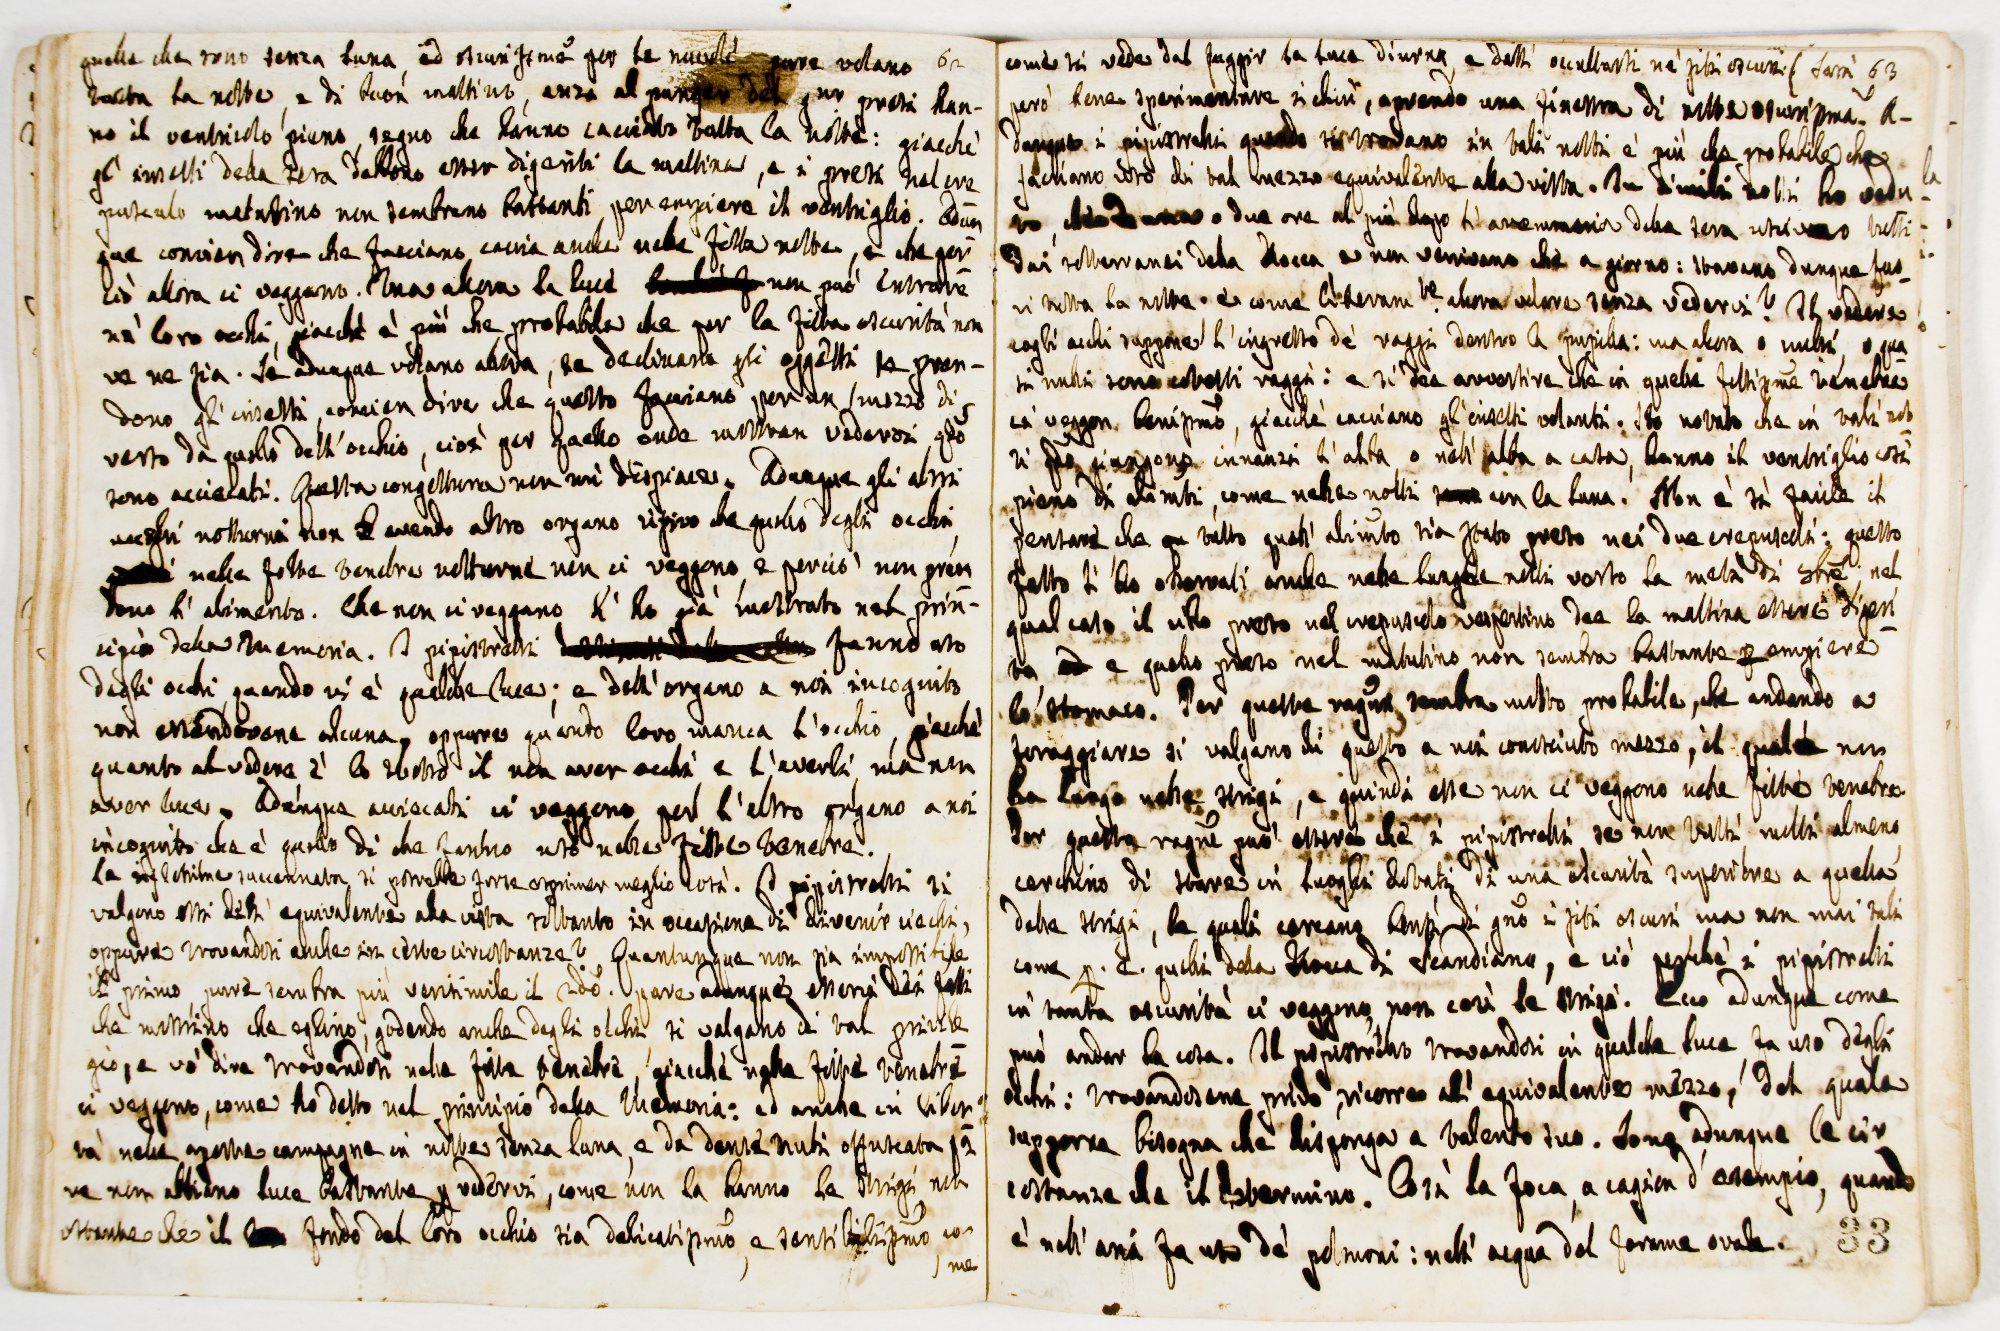 quelle che sono senza luna, ed oscurissime per le nuvole pure volano 62
tutta la notte, e di buon mattino, anzi al punger del giorno presi han-
no il ventricolo pieno, segno che hanno cacciato tutta la notte: giacchè
gl' insetti della sera debbono esser digeriti la mattina, e i presi nel cre
pusculo matutino non sembrano bastanti per empiere il ventriglio. Adun
que convien dire che facciano caccia anche nelle fitte notte, e che per
ciò allora ci veggano. Ma allora la luce non può entrare
nè loro occhi, giacchè è più che probabile che per la fitta oscurità non
ve ne sia. Se adunque volano allora, se declinano gli oggetti se pren-
dono gl' insetti, convien dire che questo facciano per un mezzo di
verso da quello dell' occhio, cioè per quello onde mostran vederci qdo
sono acciecati. Questa congettura non mi dispiace. Adunque gli altri
uccelli notturni non avendo altro organo visivo che quello degli occhi,
nelle fitte tenebre notturne non ci veggono, e perciò non pren
dono l' alimento. Che non ci veggano l' ho già mostrato nel prin-
cipio della Memoria. I pipistrelli fanno uso
degli occhi quando vi è qualche luce; e dell' organo a noi incognito
non essendovene alcuna, oppure quando loro manca l' occhio, giacchè
quanto al vedere è lo stesso il non aver occhi e l' averli, ma non
aver luce. Adunque acciecati ci veggono per l' altro organo a noi
incognito che è quello di che fanno uso nelle fitte tenebre.
La riflessione succennata si potrebbe forse esprimer meglio così. I pipistrelli si
valgono essi dell' equivalente alla vista soltanto in occasione di divenir ciechi,
oppure trovandosi anche in certe circostanze? Quantunque non sia impossibile
il primo, pure sembra più verisimile il 2do. pare adunque esserci dei fatti
che mostrino che eglino, godendo anche degli occhi si valgano di tal privile
gio, e vo' dire trovandosi nelle fitte tenebre, giacchè nelle fitte tenebre
ci veggono, come ho detto nel principio della Memoria: ed anche in liber
tà nelle aperte campagne in notte senza luna, e da dense nubi offuscata
ve non abbiano luce bastante p vederci, come non la hanno le Strigi non
ostante che il fondo del loro occhio sia delicatissimo, e sensibilissimo, co-
me
come si vede dal fuggir la luce diurna, e dall' occultarsi ne' siti oscuri. Sarà 63
però bene sperimentare i chiù, aprendo una finestra di notte oscurissima. A-
dunque i pipistrelli quando si trovano in tali notti è più che probabile che
facciano uso di tal mezzo equivalente alla vista. In simili notti ho vedu- la
to, che una o due ore al più dopo l' avemmaria della sera uscivano tutti
dai sotterranei della Rocca e non venivano che a giorno: stavano dunque fuo-
ri tutta la notte. e come allora volare senza vederci? Il vedere
cogli occhi suppone l' ingresso de' raggi dentro la pupilla: ma allora o nulli, o qua
si nulli sono cotesti raggi: e si dee avvertire che in quelle foltissime tenebre
ci veggon benissimo, giacchè cacciano gl' insetti volanti. Ho notato che in tali not
ti qdo giungono innanzi l' alba, o nell' alba a casa, hanno il ventriglio così
pieno di alimti, come nelle notti con la luna. Non è sì facile il
pensare che tutto quest' alimto sia stato preso nei due crepuscoli: questo
fatto l' ho osservati anche nelle lunghe notti verso la metà di 8bre, nel
qual caso il cibo preso nel crepuscolo vespertino dee la mattina essere digeri
to e quello preso nel matutino non sembra bastante p empiere
lo stomaco. Per queste ragioni sembra molto probabile, che andando a
foraggiare si valgano di questo a noi conosciuto mezzo, il quale non
ha luogo nelle strigi, e quindi esse non ci veggono nelle fitte tenebre.
Per questa ragne può essere che i pipistrelli, se non tutti, molti almeno
cerchino di stare in luoghi dotati di una oscurità superiore a quella
delle strigi, le quali cercano bensì di gno i siti oscuri ma non mai tali
come p. e. quelli della Rocca di Scandiano, e ciò perchè i pipistrelli
in tanta oscurità ci veggono, non così le strigi. Ecco adunque come
può andar la cosa. Il pipistrello trovandosi in qualche luce, fa uso degli
occhi: trovandosene privo, ricorre all' equivalente mezzo, del quale
supporre bisogna che disponga a talento suo. Sono adunque le cir
costanze che il determino. Così la foca, a cagion d' esempio, quando
è nell' aria fa uso de' polmoni: nell' acqua del forame ovale. 33